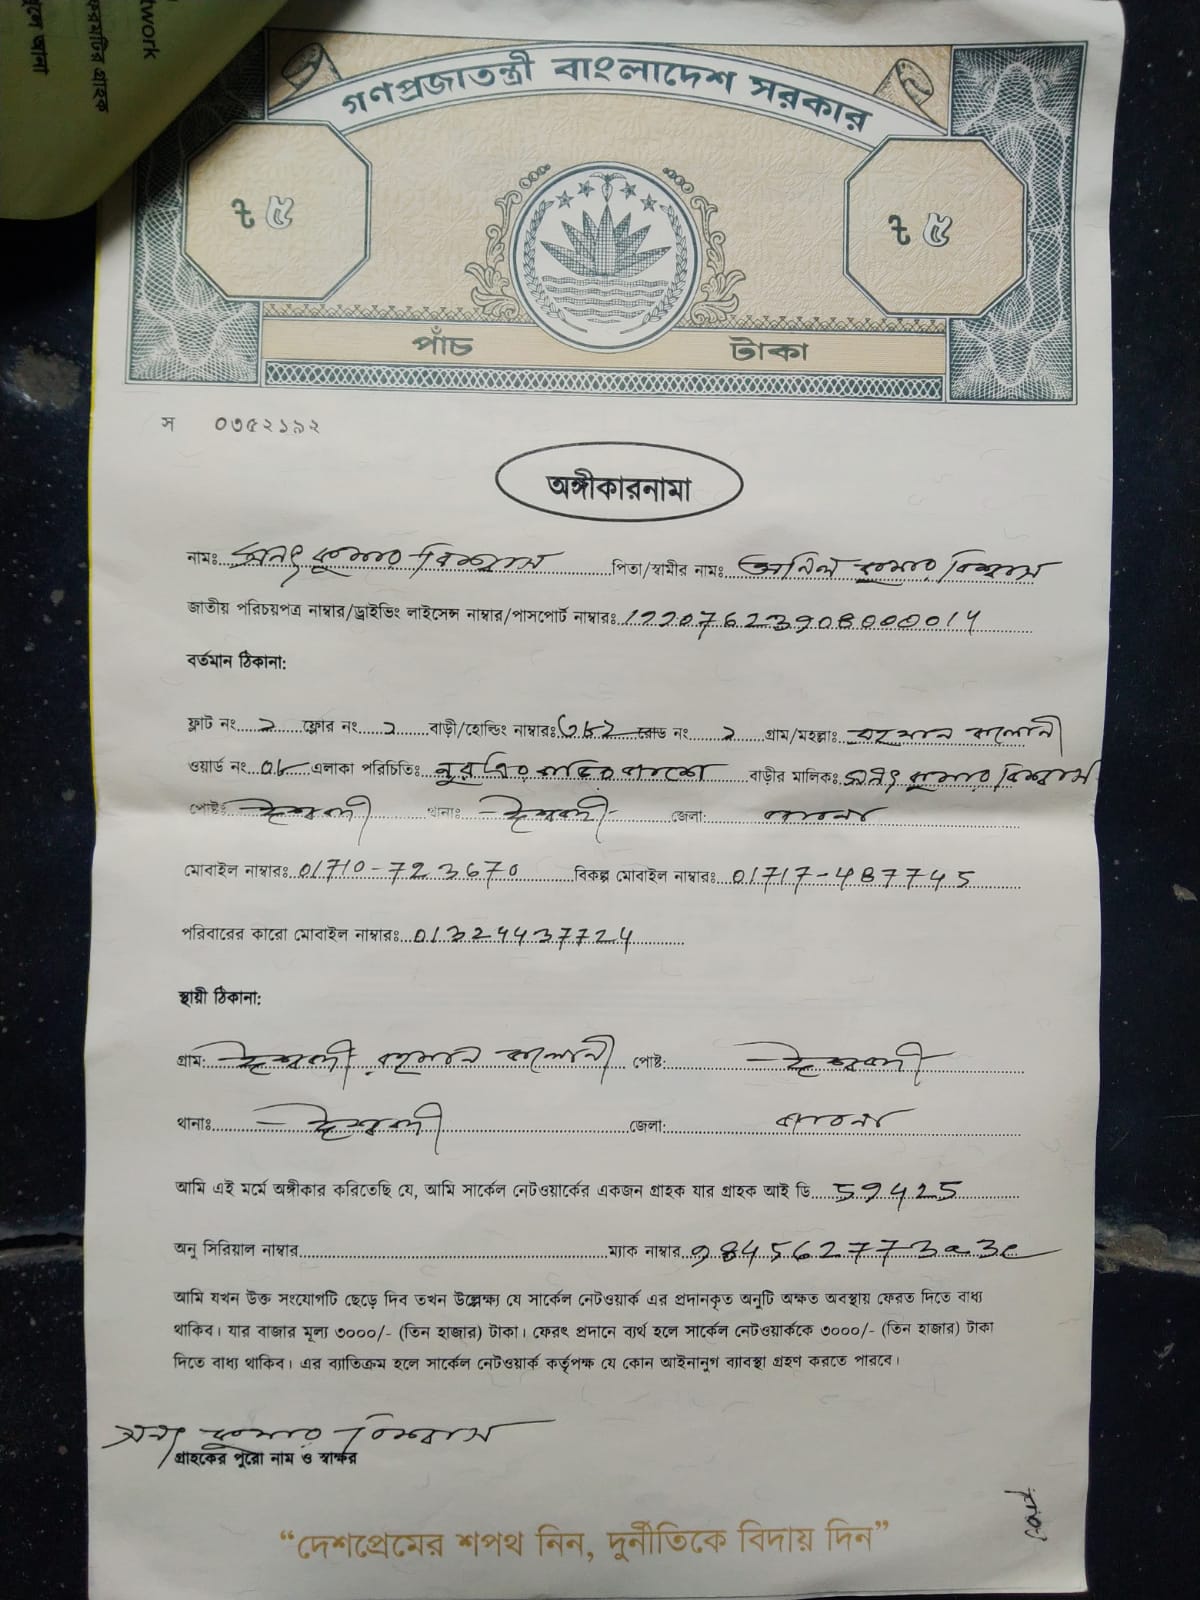 twork
করমটির গ্রাহক
মূলে জানা
গণপ্রজাতন্ত্রী বাংলাদেশ সরকার
ট ৫ ট ৫
পাঁচ টাকা
স ০৩৫২১৯২
অঙ্গীকারনামা
নামঃ কুমার বিশ্বাস পিতা/স্বামীর নামঃ অনিল কুমার বিশ্বাস
জাতীয় পরিচয়পত্র নাম্বার/ড্রাইভিং লাইসেন্স নাম্বার/পাসপোর্ট নাম্বারঃ 12207623908000014
বর্তমান ঠিকানা:
ফ্লাট নং ২ ফ্লোর নং ২ বাড়ী/হোল্ডিং নাম্বারঃ রোড নং ২ গ্রাম/মহল্লাঃ রহমান কলোনী
ওয়ার্ড নং ০৮ এলাকা পরিচিতিঃ বাড়ীর মালিকঃ কুমার বিশ্বাস
পোষ্টঃ ঈশ্বরদী থানাঃ ঈশ্বরদী জেলা: পাবনা
মোবাইল নাম্বারঃ 01710-723670 বিকল্প মোবাইল নাম্বারঃ 01717-487745
পরিবারের কারো মোবাইল নাম্বারঃ 01324437724
স্থায়ী ঠিকানা:
গ্রাম: ঈশ্বরদী রহমান কলোনী পোষ্ট: ঈশ্বরদী
থানাঃ ঈশ্বরদী জেলা: পাবনা
আমি এই মর্মে অঙ্গীকার করিতেছি যে, আমি সার্কেল নেটওয়ার্কের একজন গ্রাহক যার গ্রাহক আই ডি 59425
অনু সিরিয়াল নাম্বার ম্যাক নাম্বার 9845627773a3e
আমি যখন উক্ত সংযোগটি ছেড়ে দিব তখন উল্লেক্ষ্য যে সার্কেল নেটওয়ার্ক এর প্রদানকৃত অনুটি অক্ষত অবস্থায় ফেরত দিতে বাধ্য
থাকিব। যার বাজার মূল্য ৩০০০/- (তিন হাজার) টাকা। ফেরৎ প্রদানে ব্যর্থ হলে সার্কেল নেটওয়ার্ককে ৩০০০/- (তিন হাজার) টাকা
দিতে বাধ্য থাকিব। এর ব্যাতিক্রম হলে সার্কেল নেটওয়ার্ক কর্তৃপক্ষ যে কোন আইনানুগ ব্যাবস্থা গ্রহণ করতে পারবে।
কুমার বিশ্বাস
গ্রাহকের পুরো নাম ও স্বাক্ষর
“দেশপ্রেমের শপথ নিন, দুর্নীতিকে বিদায় দিন”